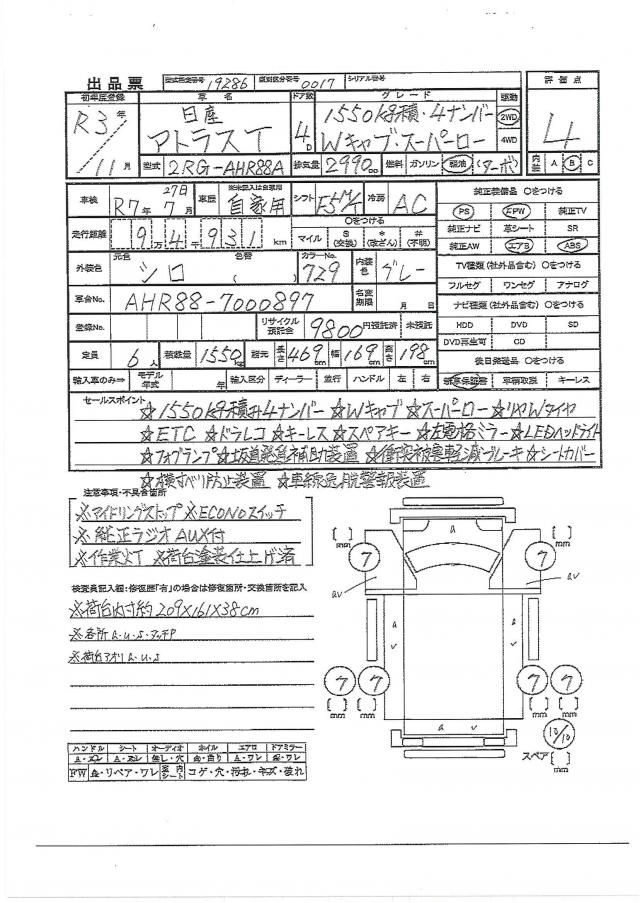 出品票 型式指定番号 19286 類別区分番号 0017 シリアル番号
初年度登録 車名 ドア数 グレード 駆動 評価点
R3年 日産 4D 1550kg積・4ナンバー 2WD 4
11月 アトラス Wキャブ・スーパーロー 4WD
型式 2RG-AHR88A 排気量 2990cc 燃料 ガソリン 軽油 ターボ 内装 A B C
車検 R7年7月27日 車歴 未記入は自家用 自家用 シフト F5 冷房 AC 純正装備品 ○をつける
PS PW 純正TV
○をつける 純正ナビ 革シート SR
走行距離 9万4千931km マイル $(交換) *(改ざん) #(不明) 純正AW エアB ABS
外装色 元色 シロ 色替 カラーNo. 729 内装色 グレー TV種類(社外品含む) ○をつける
フルセグ ワンセグ アナログ
車台No. AHR88-7000897 名変期限 月 日 ナビ種類(社外品含む) ○をつける
登録No. リサイクル預託金 9800円預託済 未預託 HDD DVD SD
DVD再生可 CD
定員 6人 積載量 1550kg 諸元 長さ469cm 幅169cm 高さ198cm 後日発送品 ○をつける
輸入車のみ⇒ モデル年式 年 輸入区分 ディーラー 並行 ハンドル 左 右 新車保証書 車輌取説 キーレス
セールスポイント ☆1550kg積み4ナンバー ☆Wキャブ ☆スーパーロー ☆リヤWタイヤ
☆ETC ☆ドラレコ ☆キーレス ☆スペアキー ☆左電格ミラー ☆LEDヘッドライト
☆フォグランプ ☆坂道発進補助装置 ☆衝突被害軽減ブレーキ ☆シートカバー
☆横すべり防止装置 ☆車線逸脱警報装置
注意事項・不具合箇所
※アイドリングストップ ※ECONOスイッチ
※純正ラジオAUX付
※作業灯 ※荷台塗装仕上げ済
検査員記入欄:修復歴「有」の場合は修復箇所・交換箇所を記入
※荷台内寸約209×161×38cm
※各所A・U・S・タッチP
※荷台アオリA・U・S
a
[ ]mm 7 7 [ ]mm
av av
a v a v
7 7 7 7
[ ]mm [ ]mm [ ]mm [ ]mm
a v
10/10
スペア[ ]mm
ハンドル シート オーディオ ホイル エアロ ドアミラー
A・スレ A・スレ 無し・穴 曲・曲り A・ワレ A・ワレ
FW A・リペア・ワレ 室内シート コゲ・穴・汚れ・キズ・破れ